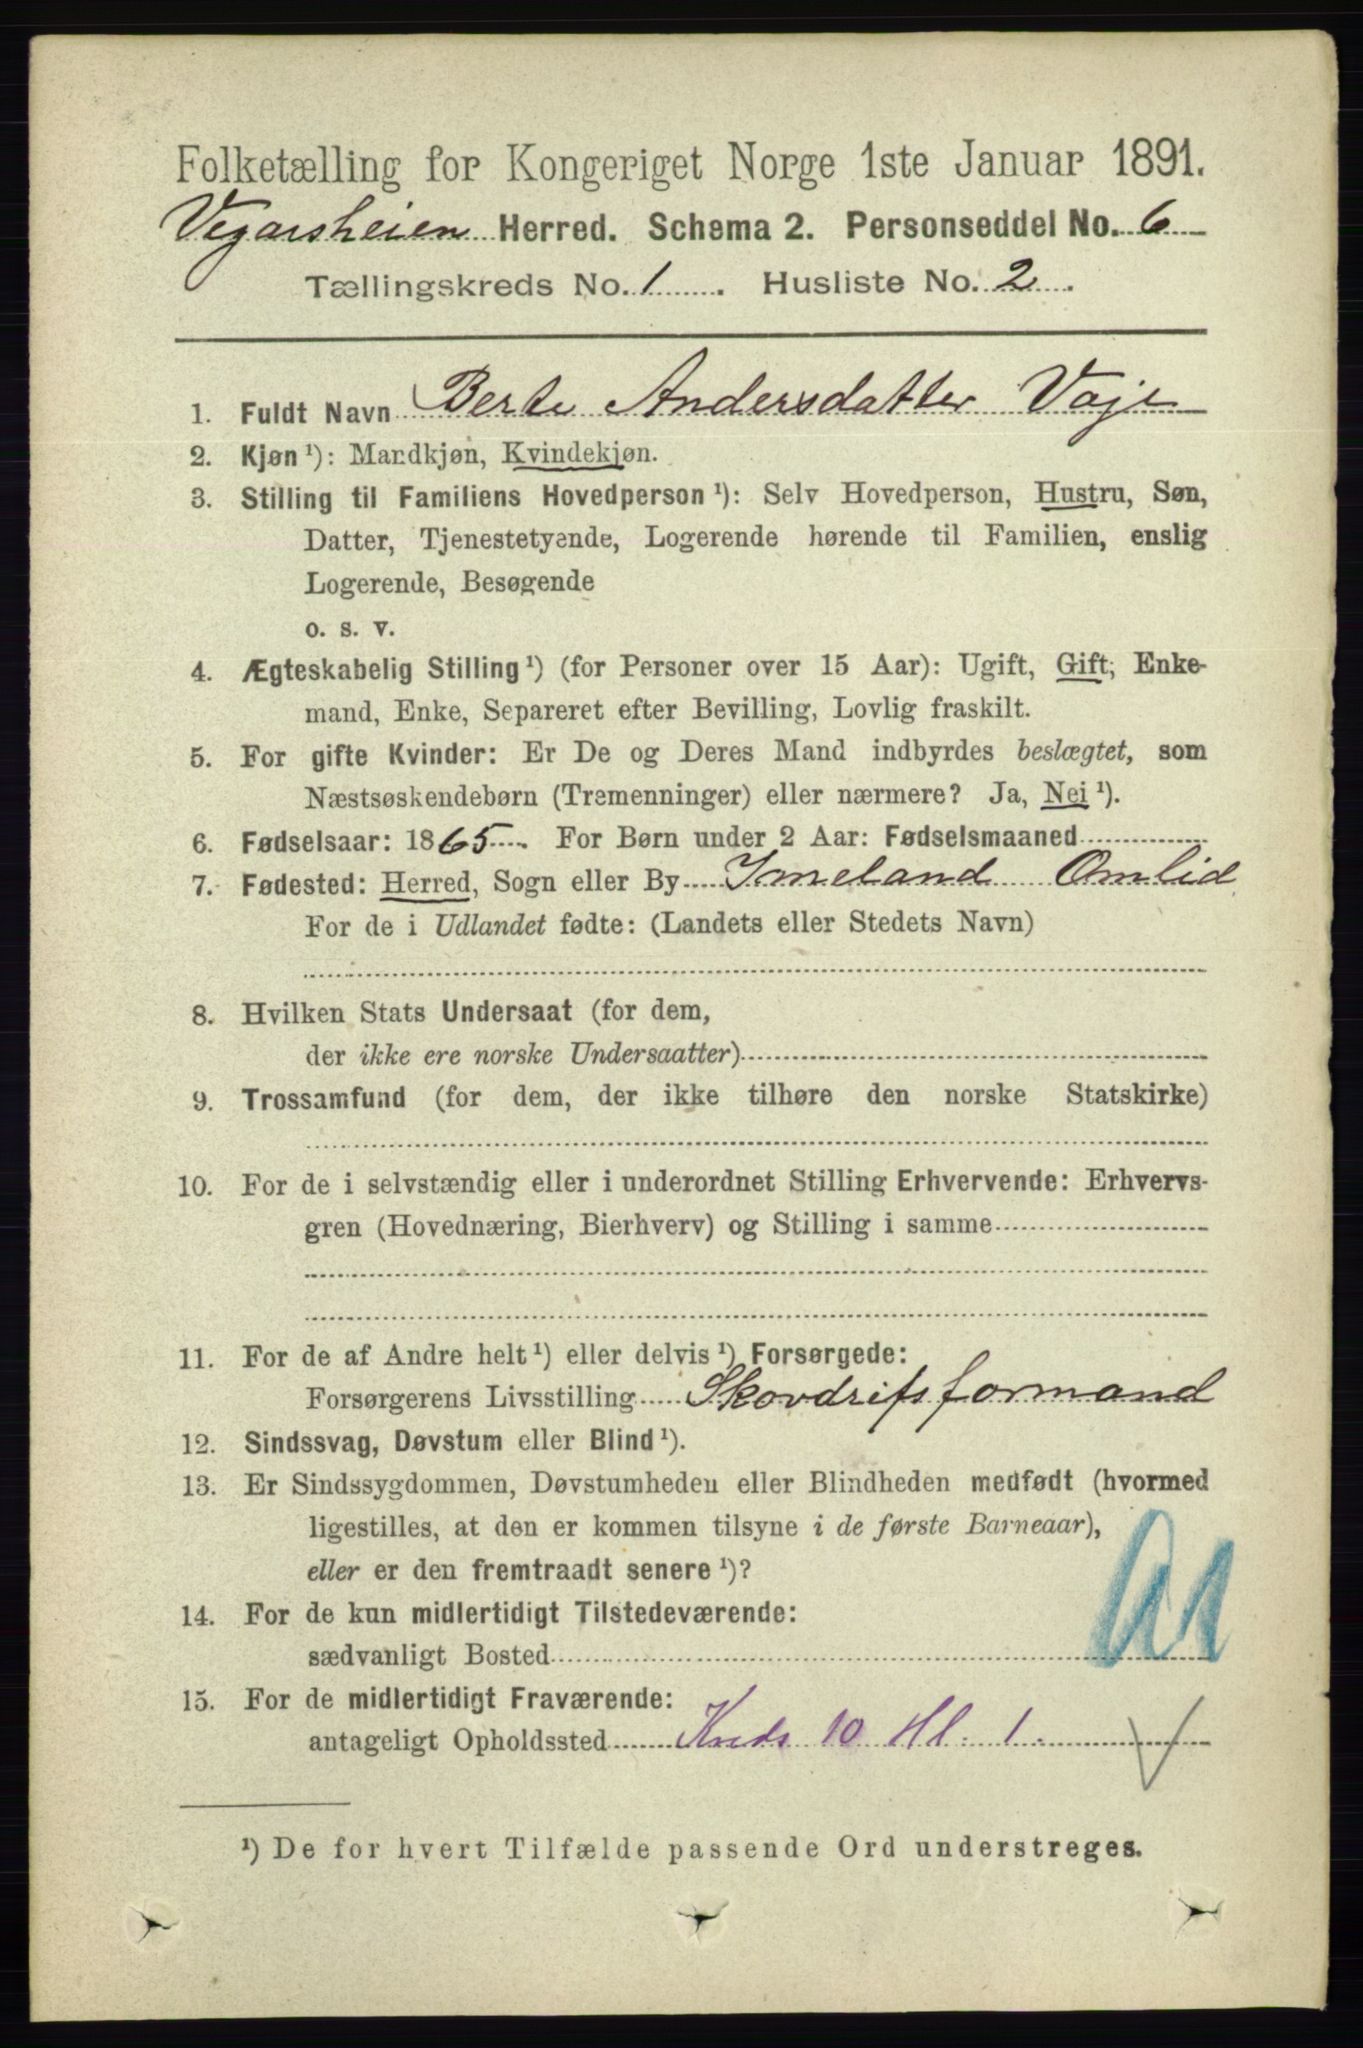 Folketælling for Kongeriget Norge 1ste Januar 1891.
Vegarsheien Herred. Schema 2. Personseddel No. 6
Tællingskreds No. 1. Husliste No. 2.
1. Fuldt Navn Berte Andersdatter Vaje
2. Kjøn ¹): Mandkjøn, Kvindekjøn.
3. Stilling til Familiens Hovedperson ¹): Selv Hovedperson, Hustru, Søn,
Datter, Tjenestetyende, Logerende hørende til Familien, enslig
Logerende, Besøgende
o. s. v.
4. Ægteskabelig Stilling ¹) (for Personer over 15 Aar): Ugift, Gift, Enke-
mand, Enke, Separeret efter Bevilling, Lovlig fraskilt.
5. For gifte Kvinder: Er De og Deres Mand indbyrdes beslægtet, som
Næstsøskendebørn (Tremenninger) eller nærmere? Ja, Nei ¹).
6. Fødselsaar: 1865. For Børn under 2 Aar: Fødselsmaaned
7. Fødested: Herred, Sogn eller By Imeland Omlid
For de i Udlandet fødte: (Landets eller Stedets Navn)
8. Hvilken Stats Undersaat (for dem,
der ikke ere norske Undersaatter)
9. Trossamfund (for dem, der ikke tilhøre den norske Statskirke)
10. For de i selvstændig eller i underordnet Stilling Erhvervende: Erhvervs-
gren (Hovednæring, Bierhverv) og Stilling i samme
11. For de af Andre helt ¹) eller delvis ¹) Forsørgede:
Forsørgerens Livsstilling Skovdrifsformand
12. Sindssvag, Døvstum eller Blind ¹).
13. Er Sindssygdommen, Døvstumheden eller Blindheden medfødt (hvormed
ligestilles, at den er kommen tilsyne i de første Barneaar),
eller er den fremtraadt senere ¹)?
14. For de kun midlertidigt Tilstedeværende:
sædvanligt Bosted
15. For de midlertidigt Fraværende:
antageligt Opholdssted Kreds 10 Hl. 1.
¹) De for hvert Tilfælde passende Ord understreges.